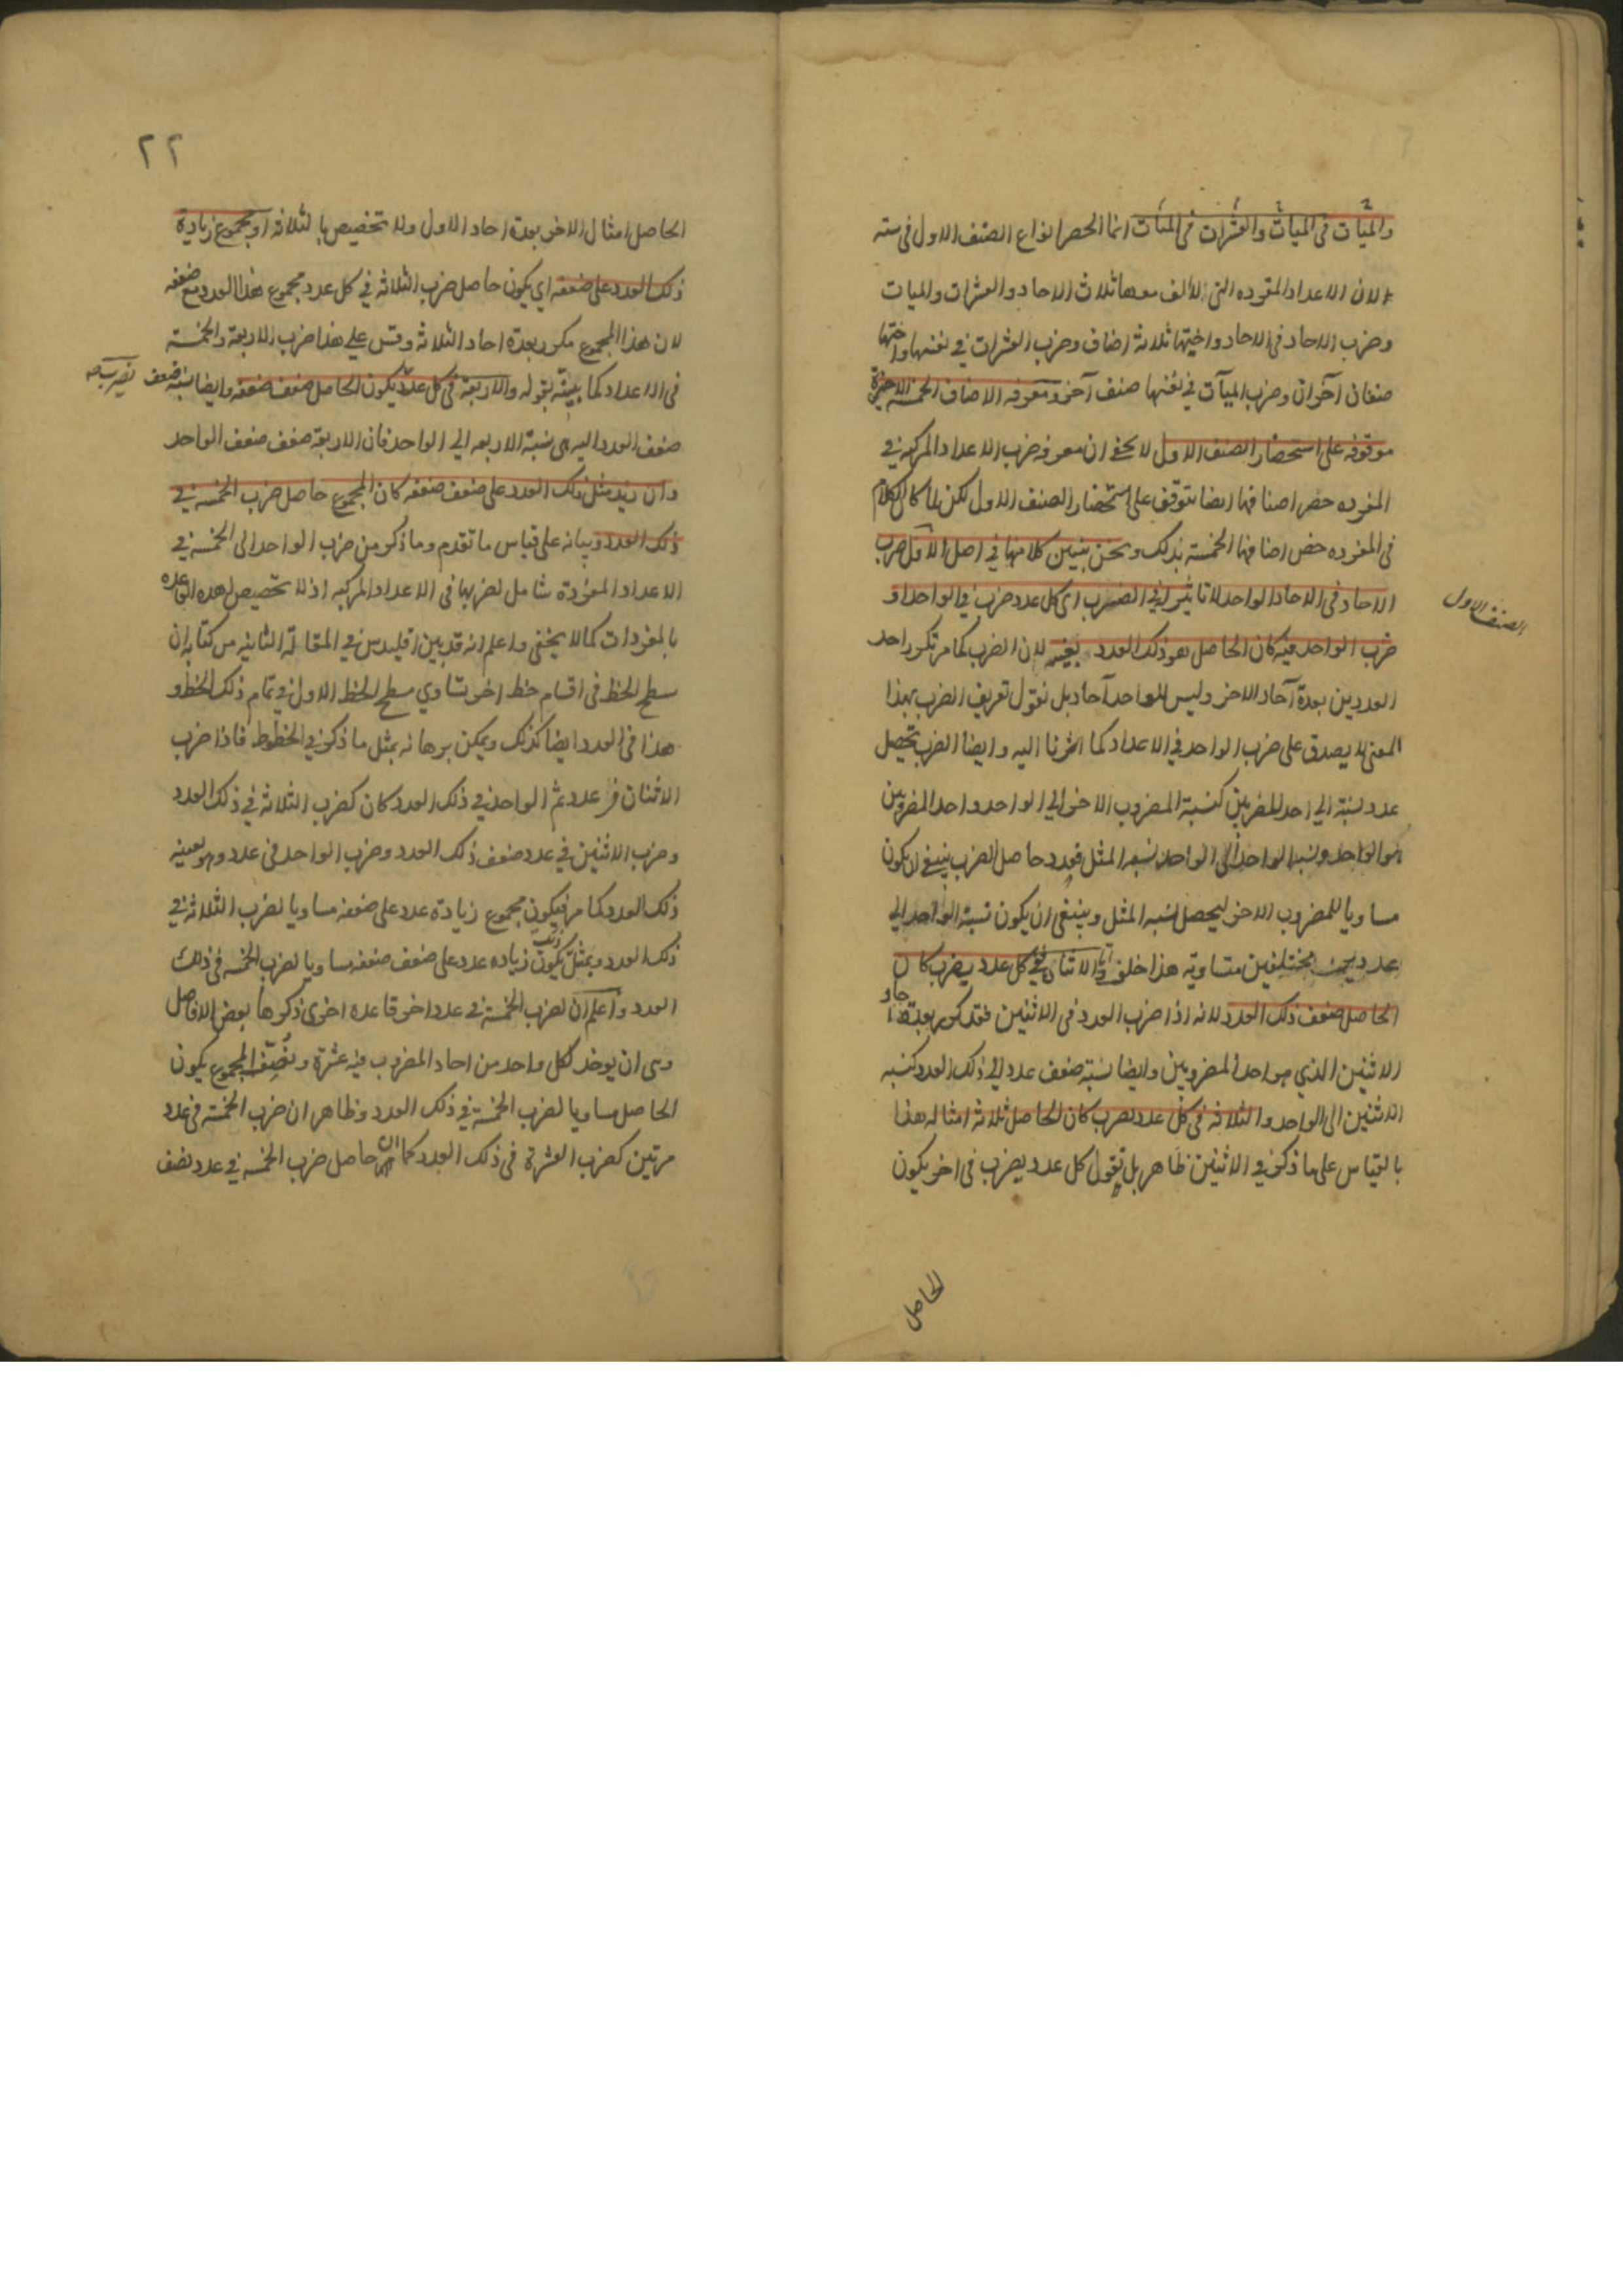 والميآت في الميآت والعشرات في الميآت انما انحصر انواع الصنف الاول في ستة
لان الاعداد المفرده التي لا الف معها ثلاث الاحاد والعشرات والميات
وضرب الاحاد في الاحاد واختيها ثلاثة اصناف وضرب العشرات في نفسها واختها
صنفان آخران وضرب الميآت في نفسها صنف آخر ومعرفه الاصناف الخمسه الاخيرة
موقوفه على استحضار الصنف الاول لا يخفى ان معرفه ضرب الاعداد المركبه في
المفرده حصر اصنافها ايضا يتوقف على استحضار الصنف الاول لكن لما كان الكلام
في المفرده خص اصنافها الخمسة بذلك ونحن نبين كلا منها في اصل الاول ضرب
الصنف الاول
الاحاد في الاحاد الواحد لا تاثير له في الضرب اى كل عدد ضرب في الواحد او
ضرب الواحد فيه كان الحاصل هو ذلك العدد بعينه لان الضرب كما مر تكرر احد
العددين بعدة آحاد الاخر وليس للواحد آحاد بل نقول تعريف الضرب بهذا
المعنى لا يصدق على ضرب الواحد في الاعداد كما اشرنا اليه وايضا الضرب تحصيل
عدد نسبة الي احد المضروبين كنسبة المضروب الاخر الي الواحد واحد المضروبين
هو الواحد ونسبه الواحد الى الواحد نسبه المثل فعدد حاصل الضرب ينبغي ان يكون
مساويا للمضروب الاخر ليحصل نسبه المثل وينبغى ان يكون نسبة الواحد الي
عددين مختلفين متساوية هذا خلف والاثنان في كل عدد يضرب كان
الحاصل ضعف ذلك العدد لانه اذا ضرب العدد في الاثنين فقد كرر بعدة احاد
الاثنين الذي هو احد المضروبين وايضا نسبة ضعف عدد الي ذلك العدد كنسبه
الاثنين الى الواحد والثلاثه في كل عدد يضرب كان الحاصل ثلاثة امثاله هذا
بالقياس على ما ذكر في الاثنين ظاهر بل نقول كل عدد يضرب في اخر يكون
الحاصل
٢٢
الحاصل امثال الاخر بعدة احاد الاول ولا تخصيص بالثلاثه او مجموع زيادة
ذلك العدد على ضعفه اي يكون حاصل ضرب الثلاثه في كل عدد مجموع هذا العدد مع ضعفه
لان هذا المجموع مكرر بعدة احاد الثلاثة وقس على هذا ضرب الاربعة والخمسة
في الاعداد كما بينه بقوله والاربعة في كل عدد يكون الحاصل ضعف ضعفه وايضا نسبة ضعف
يضرب صح
ضعف العدد اليه هى نسبة الاربعه الي الواحد فان الاربعة ضعف ضعف الواحد
وان زيد مثل ذلك العدد على ضعف ضعفه كان المجموع حاصل ضرب الخمسه في
ذلك العدد وبيانه على قياس ما تقدم وما ذكر من ضرب الواحد الى الخمسه في
الاعداد المفردة شامل لضربها في الاعداد المركبه اذ لا تخصيص لهذه القاعده
بالمفردات كما لا يخفى واعلم انه قد بين اقليدس في المقالة الثانيه من كتابه ان
سطح الخط في اقسام خط اخر تساوي سطح الخط الاول في تمام ذلك الخط و
هذا في العدد ايضا كذلك ويمكن برهانه بمثل ما ذكر في الخطوط فاذا ضرب
الاثنان في عدد ثم الواحد في ذلك العدد كان كضرب الثلاثة في ذلك العدد
وضرب الاثنين في عدد ضعف ذلك العدد وضرب الواحد في عدد هو بعينه
ذلك العدد كما مر فيكون مجموع زيادة عدد على ضعفه مساويا لضرب الثلاثه في
ذلك العدد وبمثل ذلك يكون زياده عدد على ضعف ضعفه مساويا لضرب الخمسه في ذلك
العدد واعلم ان لضرب الخمسة في عدد اخر قاعده اخرى ذكرها بعض الافاضل
وهى ان يوخذ لكل واحد من احاد المضروب فيه عشرة وتنصف المجموع يكون
الحاصل مساويا لضرب الخمسة في ذلك العدد وظاهر ان ضرب الخمسة في عدد
مرتين كضرب العشرة في ذلك العدد كما ان حاصل ضرب الخمسه في عدد نصف